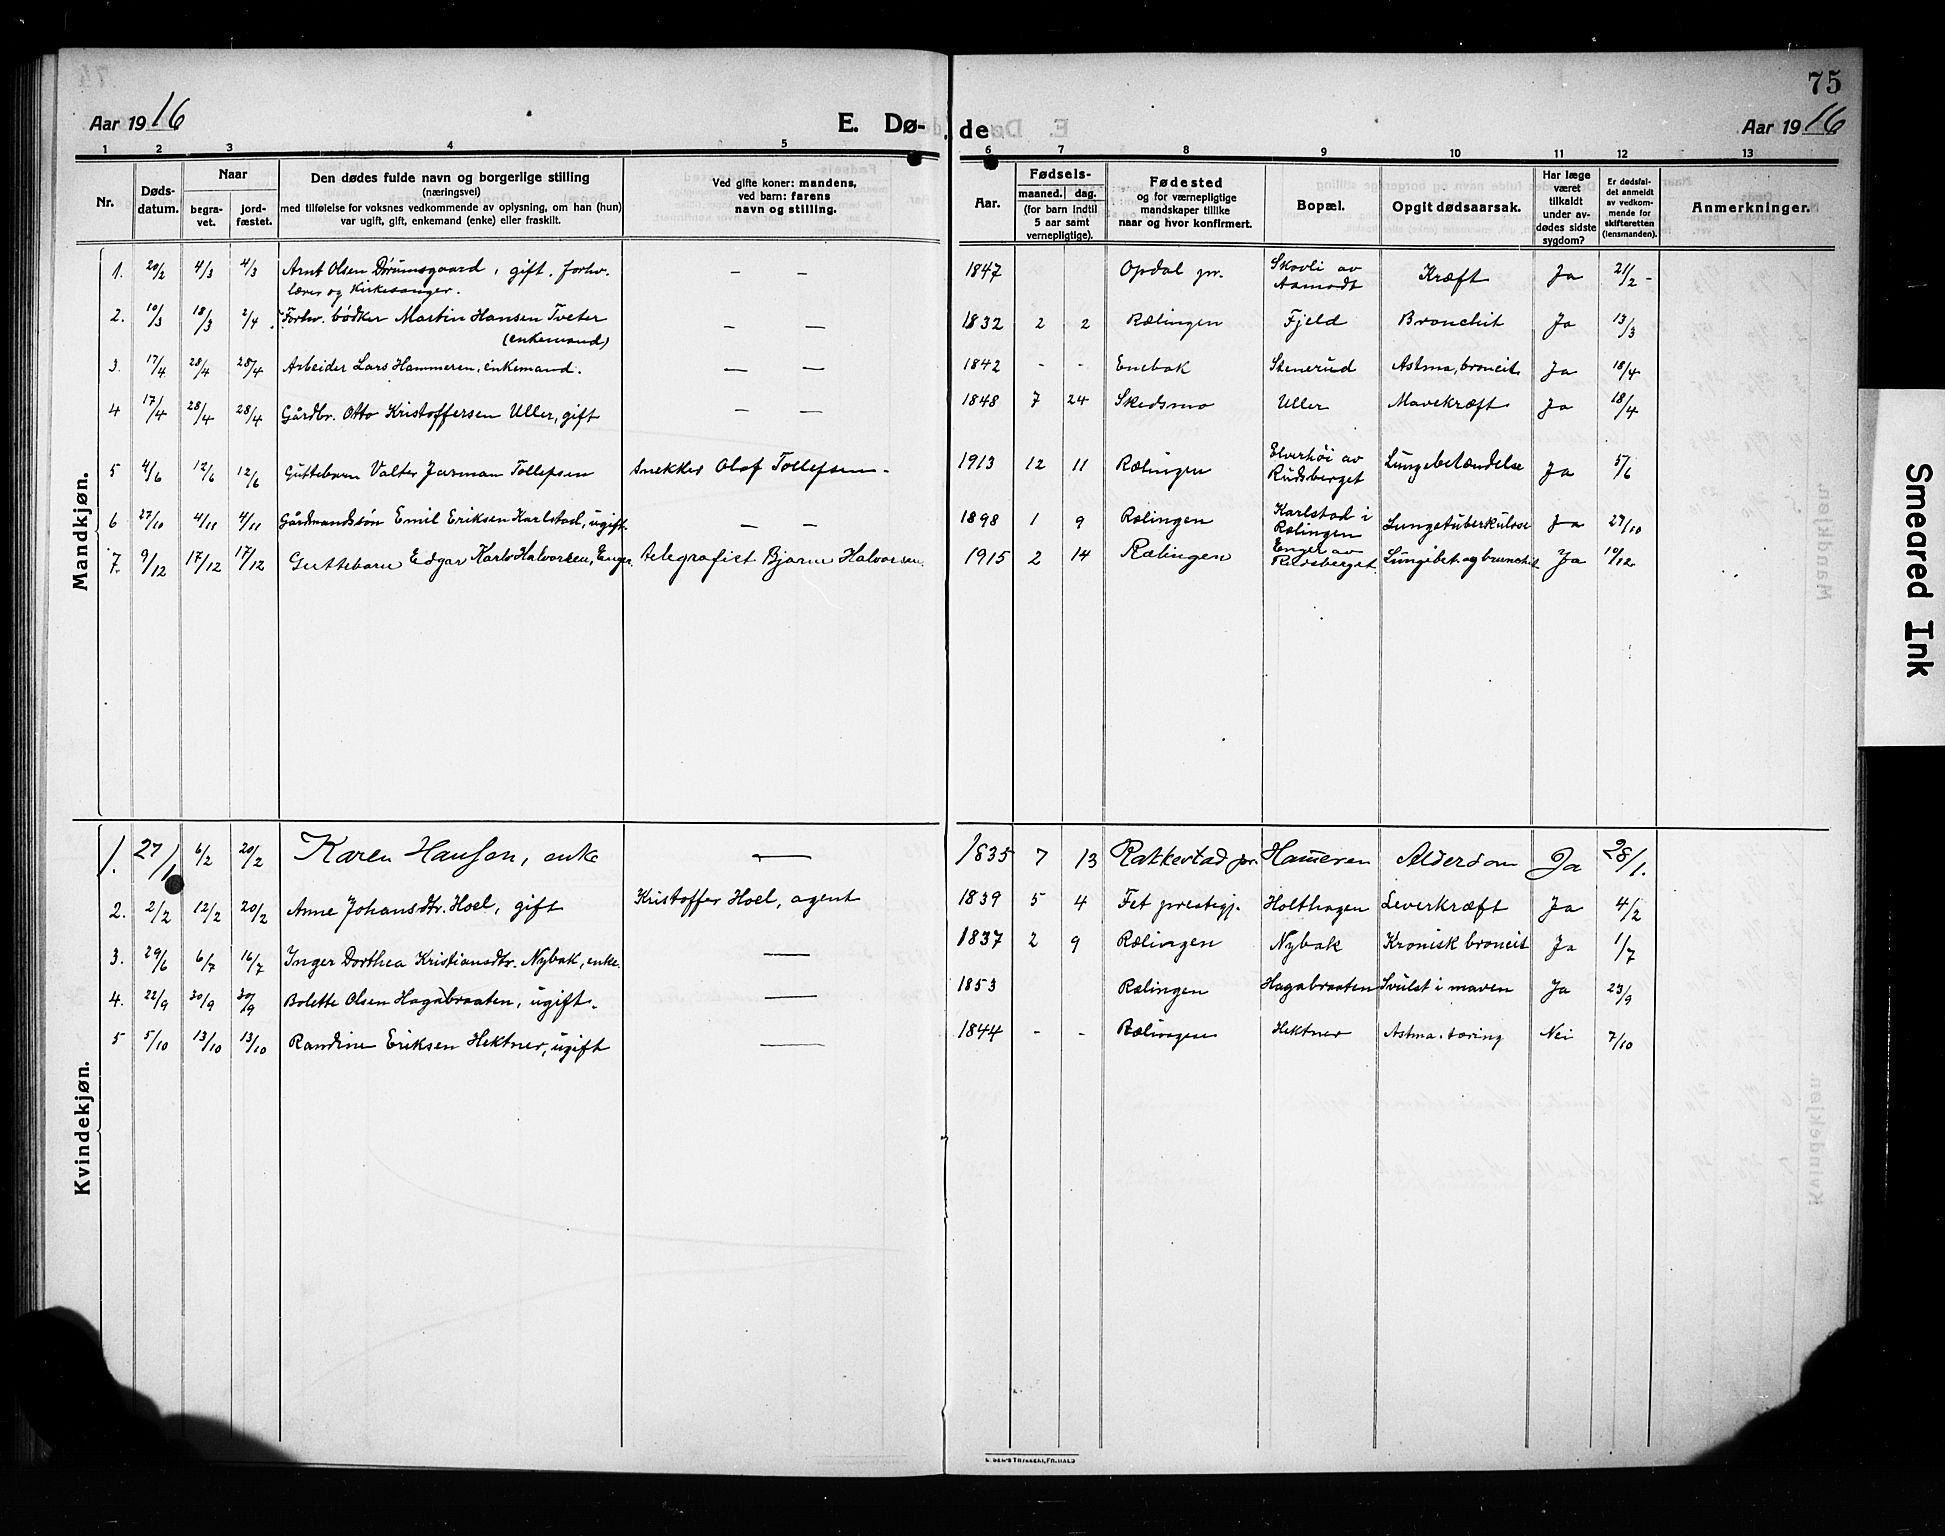 75
Aar 1916
E. Dø-
de
Aar 1916
1 2 3 4 5 6 7 8 9 10 11 12 13
Nr.
Døds-
datum.
Naar
begra-
vet.
jord-
fæstet.
Den dødes fulde navn og borgerlige stilling
(næringsvei)
med tilføielse for voksnes vedkommende av oplysning, om han (hun)
var ugift, gift, enkemand (enke) eller fraskilt.
Ved gifte koner: mandens,
ved barn: farens
navn og stilling.
Aar.
Fødsels-
maaned. dag.
(for barn indtil
5 aar samt
vernepligtige).
Fødested
og for værnepligtige
mandskaper tillike
naar og hvor konfirmert.
Bopæl.
Opgit dødsaarsak.
Har læge
været
tilkaldt
under av-
dødes sidste
sygdom?
Er dødsfal-
det anmeldt
av vedkom-
mende for
skifteretten
(lensmanden).
Anmerkninger.
Mandkjøn.
1. 20/2 4/3 4/3 Arnt Olsen Dørumsgaard, gift. forhv. — — 1847 Opdal pr. Skovli av Kræft Ja 21/2 -
lærer og Kirkesanger. Aamodt
2. 10/3 18/3 2/4 Forhv. bødker Martin Hansen Tveter — — 1832 2 2 Rælingen Fjeld Bronchit Ja 13/3
(enkemand)
3. 17/4 28/4 28/4 Arbeider Lars Hammeren, enkemand. — — 1842 - - Enebak Stenerud Astma, broncit Ja 18/4
4 17/4 28/4 28/4 Gårdbr. Otto Kristoffersen Uller, gift — — 1848 7 24 Skedsmo Uller Mavekræft Ja 18/4
5 4/6 12/6 12/6 Guttebarn Valter Jarman Tollefsen Snekker Olaf Tollefsen - 1913 12 11 Rælingen Elverhöi av Lungebetændelse Ja 5/6
Rudsberget
6 27/10 4/11 4/11 Gårdmandssön Emil Eriksen Karlstad, ugift. — — 1898 1 9 Rælingen Karlstad i Lungetuberkulose Ja 27/10
Rælingen
7. 9/12 17/12 17/12 Guttebarn Edgar Karlo Halvorsen, Enger telegrafist Bjarne Halvorsen. 1915 2 14 Rælingen Enger av Lungebet. og brunchit Ja 10/12
Rudsberget
Kvindekjøn.
1. 27/1 6/2 20/2 Karen Hansen, enke — 1835 7 13 Rakkestad pr. Hameren Alderdom Ja 28/1.
2. 2/2 12/2 20/2 Anne Johansdtr. Hoel, gift Kristoffer Hoel, agent 1839 5 4 Fet prestegj. Holthagen Leverkræft Ja 4/2
3. 29/6 6/7 16/7 Inger Dorthea Kristiansdtr. Nybak, enke. — 1837 2 9 Rælingen Nybak Kronisk broncit Ja 1/7
4. 22/9 30/9 30/9 Bolette Olsen Hagabraaten, ugift. — 1853 Rælingen Hagabraaten Svulst i maven Ja 23/9
5 5/10 13/10 13/10 Randine Eriksen Hektner, ugift — 1844 - - Rælingen Hektner Astma. tæring Nei 7/10
Smeared Ink